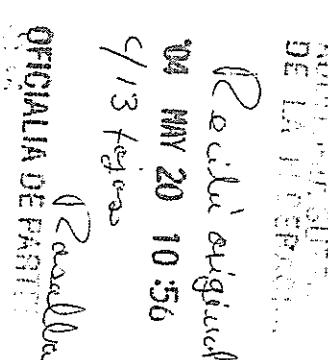 DE LA
Recibí original
'04 MAY 20 10:56
c/13 fojas
Rosalba
OFICIALIA DE PARTES